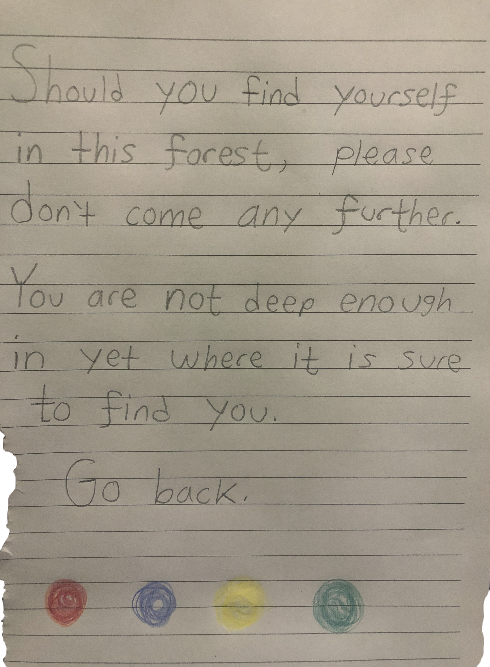 Should you find yourself
in this forest, please
don't come any further.
You are not deep enough
in yet where it is sure
to find you.
Go back.